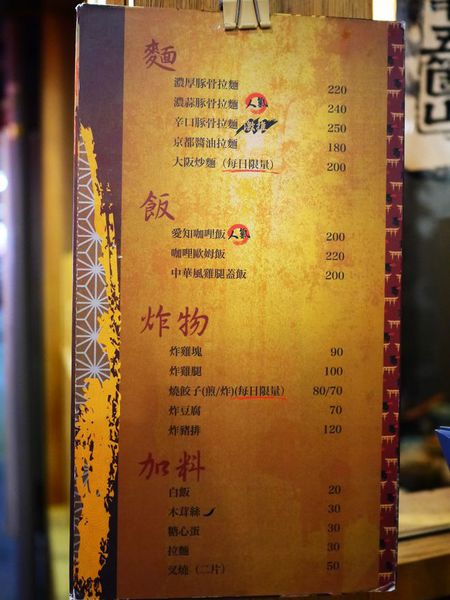 麵
濃厚豚骨拉麵 220
濃蒜豚骨拉麵 人氣 240
辛口豚骨拉麵 250
京都醬油拉麵 180
大阪炒麵（每日限量） 200
飯
愛知咖哩飯 人氣 200
咖哩歐姆飯 220
中華風雞腿蓋飯 200
炸物
炸雞塊 90
炸雞腿 100
燒餃子(煎/炸)(每日限量) 80/70
炸豆腐 70
炸豬排 120
加料
白飯 20
木茸絲 30
糖心蛋 30
拉麵 30
叉燒（二片） 50